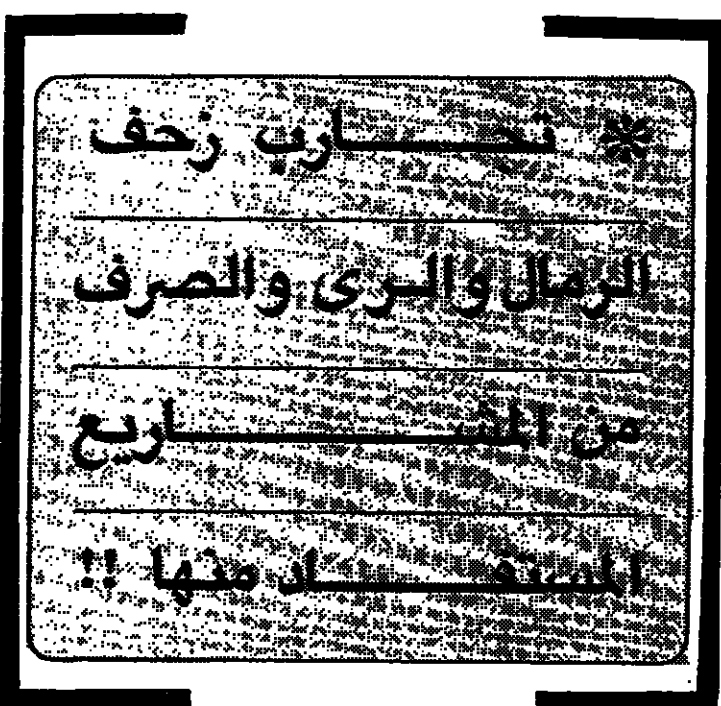 * تجارب زحف
الرمال والرى والصرف
من المشاريع
المستفاد منها !!